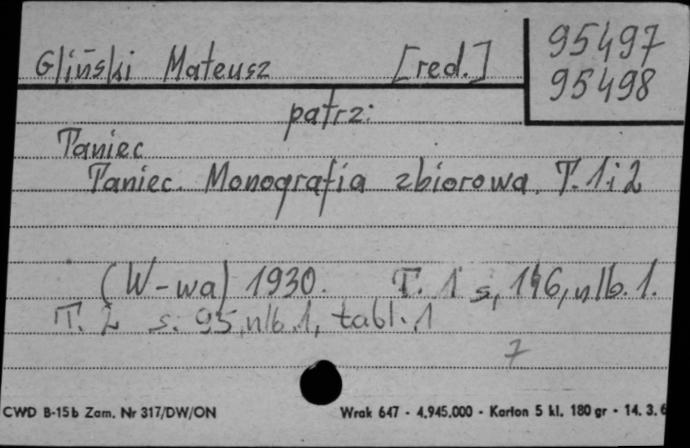 95497
Gliński Mateusz [red.] 95498
patrz:
Taniec
Taniec. Monografia zbiorowa. T. 1 i 2
(W-wa) 1930. T. 1 s. 146, nlb. 1.
T. 2 s. 95, nlb. 1, tabl. 1
7
CWD B-15b Zam. Nr 317/DW/ON Wrak 647 - 4.945.000 - Karton 5 kl. 180 gr - 14. 3. 6